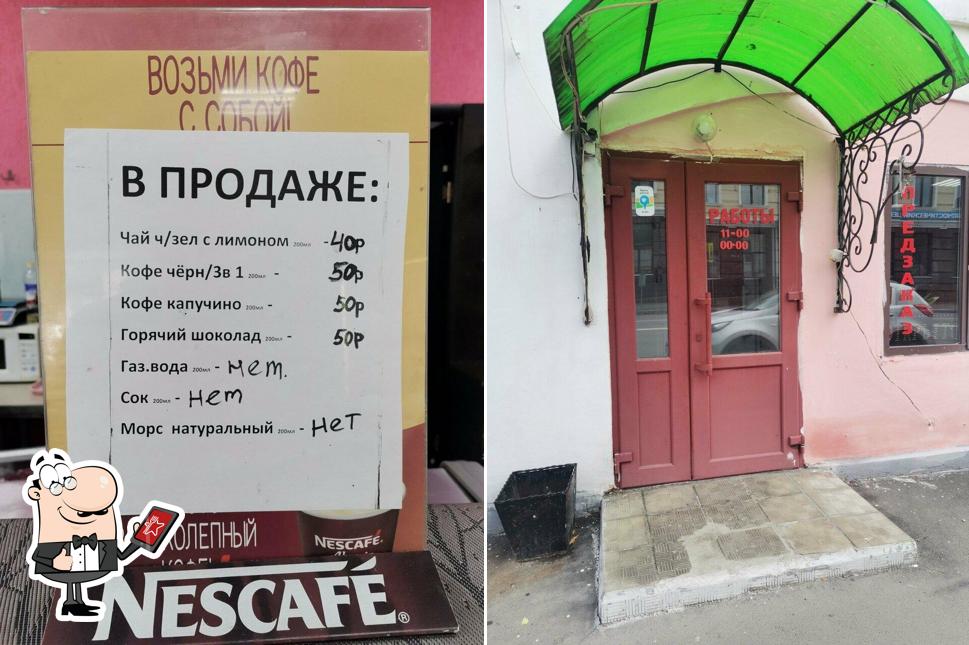 ВОЗЬМИ КОФЕ
С СОБОЙ!
В ПРОДАЖЕ:
Чай ч/зел с лимоном 200мл -40р
Кофе чёрн/3в 1 200мл - 50р
Кофе капучино 200мл - 50р
Горячий шоколад 200мл - 50р
Газ.вода 200мл - нет.
Сок 200мл - нет
Морс натуральный 200мл - нет
КОЛЕПНЫЙ
NESCAFÉ.
NESCAFÉ®
РАБОТЫ
11-00
00-00
ПРЕДЗАКАЗ